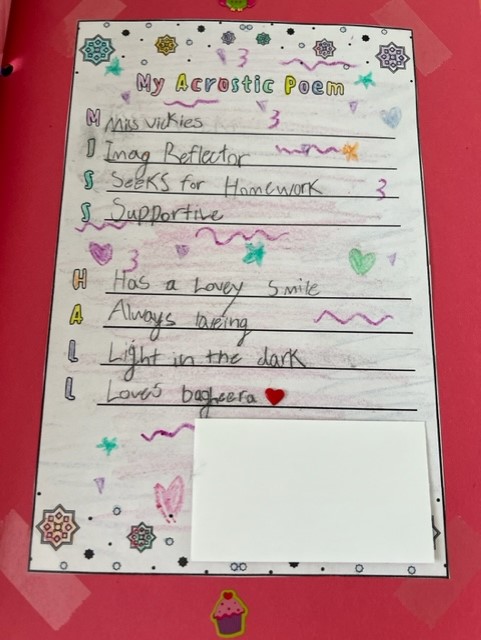 My Acrostic Poem
M Miss Vickies
I Imag Reflector
S Seeks for Homework
S Supportive
H Has a Lovey Smile
A Always loveing
L Light in the dark
L Loves bagheera